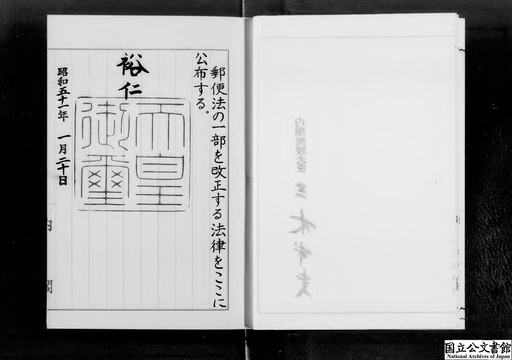 郵便法の一部を改正する法律をここに
公布する。
裕仁
天皇御璽
昭和五十一年 一月二十日
内閣
内閣総理大臣 三木武夫
国立公文書館
National Archives of Japan